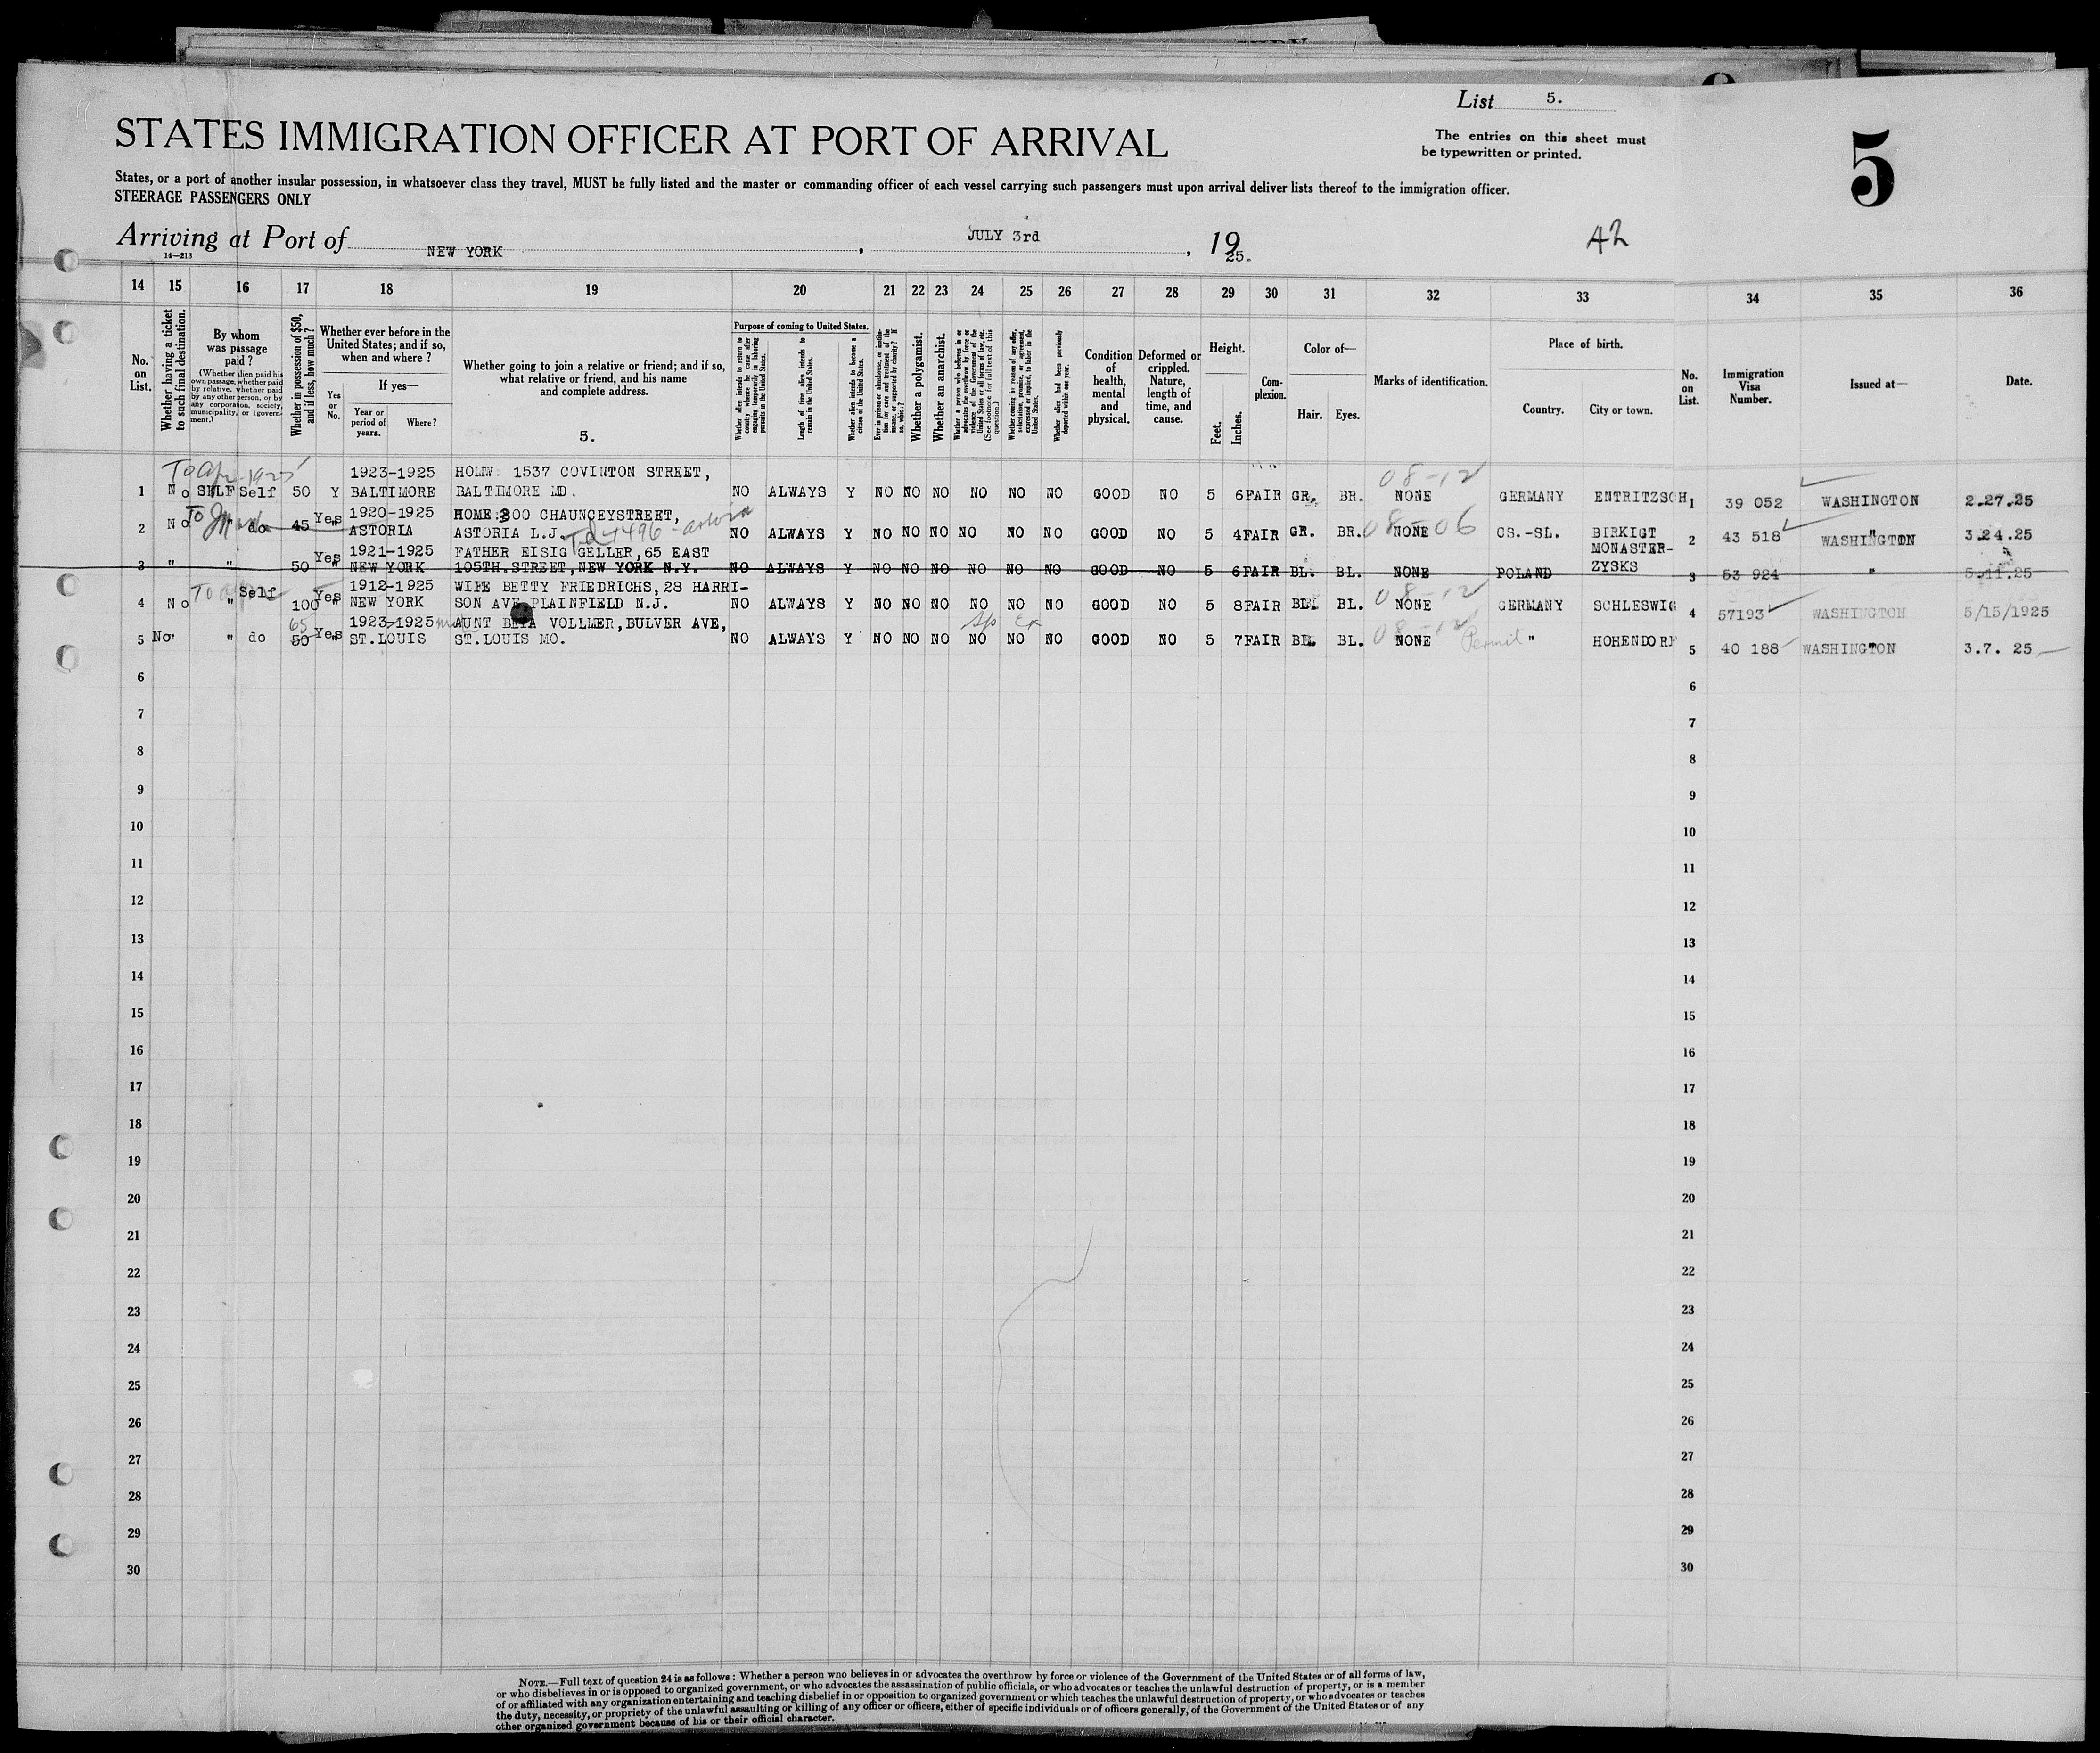 List 5.
The entries on this sheet must
be typewritten or printed.
5
STATES IMMIGRATION OFFICER AT PORT OF ARRIVAL
States, or a port of another insular possession, in whatsoever class they travel, MUST be fully listed and the master or commanding officer of each vessel carrying such passengers must upon arrival deliver lists thereof to the immigration officer.
STEERAGE PASSENGERS ONLY
Arriving at Port of NEW YORK , JULY 3rd , 1925.
42
14—213
14 15 16 17 18 19 20 21 22 23 24 25 26 27 28 29 30 31 32 33 34 35 36
No. on List.
Whether having a ticket to such final destination.
By whom was passage paid?
(Whether alien paid his own passage, whether paid by relative, whether paid by any other person, or by any corporation, society, municipality, or government.)
Whether in possession of $50, and if less, how much?
Whether ever before in the United States; and if so, when and where?
Yes or No.
If yes—
Year or period of years.
Where?
Whether going to join a relative or friend; and if so, what relative or friend, and his name and complete address.
5.
Purpose of coming to United States.
Whether alien intends to return to country whence he came after engaging temporarily in laboring pursuits in the United States.
Length of time alien intends to remain in the United States.
Whether alien intends to become a citizen of the United States.
Ever in prison or almshouse, or institution for care and treatment of the insane, or supported by charity? If so, which?
Whether a polygamist.
Whether an anarchist.
Whether a person who believes in or advocates the overthrow by force or violence of the Government of the United States or all forms of law, etc. (See footnote for full text of this question.)
Whether coming by reason of any offer, solicitation, promise, or agreement, expressed or implied, to labor in the United States.
Whether alien had been previously deported within one year.
Condition of health, mental and physical.
Deformed or crippled. Nature, length of time, and cause.
Height.
Feet. Inches.
Complexion.
Color of—
Hair. Eyes.
Marks of identification.
Place of birth.
Country. City or town.
No. on List.
Immigration Visa Number.
Issued at—
Date.
1923-1925 HOLW: 1537 COVINTON STREET, 08-12
1 No SELF Self 50 Y BALTIMORE BALTIMORE MD. NO ALWAYS Y NO NO NO NO NO NO GOOD NO 5 6 FAIR GR. BR. NONE GERMANY ENTRITZSCH 1 39 052 WASHINGTON 2.27.25
Yes 1920-1925 HOME:300 CHAUNCEYSTREET, 08-06
2 No " do 45 " ASTORIA ASTORIA L.J. NO ALWAYS Y NO NO NO NO NO NO GOOD NO 5 4 FAIR GR. BR. NONE CS.-SL. BIRKIGT 2 43 518 WASHINGTON 3.24.25
Yes 1921-1925 FATHER EISIG GELLER,65 EAST MONASTER-
3 " " 50 " NEW YORK 105TH.STREET,NEW YORK N.Y. NO ALWAYS Y NO NO NO NO NO NO GOOD NO 5 6 FAIR BL. BL. NONE POLAND ZYSKS 3 53 924 " 5.11.25
Self Yes 1912-1925 WIFE BETTY FRIEDRICHS,28 HARRI- 08-12
4 No " 100 " NEW YORK SON AVE PLAINFIELD N.J. NO ALWAYS Y NO NO NO NO NO NO GOOD NO 5 8 FAIR BL. BL. NONE GERMANY SCHLESWIG 4 57193 WASHINGTON 5/15/1925
65 Yes 1923-1925 AUNT BETA VOLLMER,BULVER AVE, 08-12
5 No " do 50 " ST.LOUIS ST.LOUIS MO. NO ALWAYS Y NO NO NO NO NO NO GOOD NO 5 7 FAIR BL. BL. NONE Permit " HOHENDORF 5 40 188 WASHINGTON 3.7. 25
6 6
7 7
8 8
9 9
10 10
11 11
12 12
13 13
14 14
15 15
16 16
17 17
18 18
19 19
20 20
21 21
22 22
23 23
24 24
25 25
26 26
27 27
28 28
29 29
30 30
NOTE.—Full text of question 24 is as follows: Whether a person who believes in or advocates the overthrow by force or violence of the Government of the United States or of all forms of law,
or who disbelieves in or is opposed to organized government, or who advocates the assassination of public officials, or who advocates or teaches the unlawful destruction of property, or is a member
of or affiliated with any organization entertaining and teaching disbelief in or opposition to organized government or which teaches the unlawful destruction of property, or who advocates or teaches
the duty, necessity, or propriety of the unlawful assaulting or killing of any officer or officers, either of specific individuals or of officers generally, of the Government of the United States or of any
other organized government because of his or their official character.